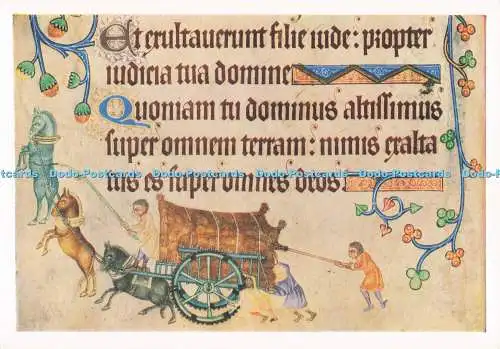 Et exultauerunt filie iude: propter
iudicia tua domine
Quoniam tu dominus altissimus
super omnem terram: nimis exalta
tus es super omnes deos.
Dodo-Postcards Dodo-Postcards Dodo-Postcards Dodo-Postcards